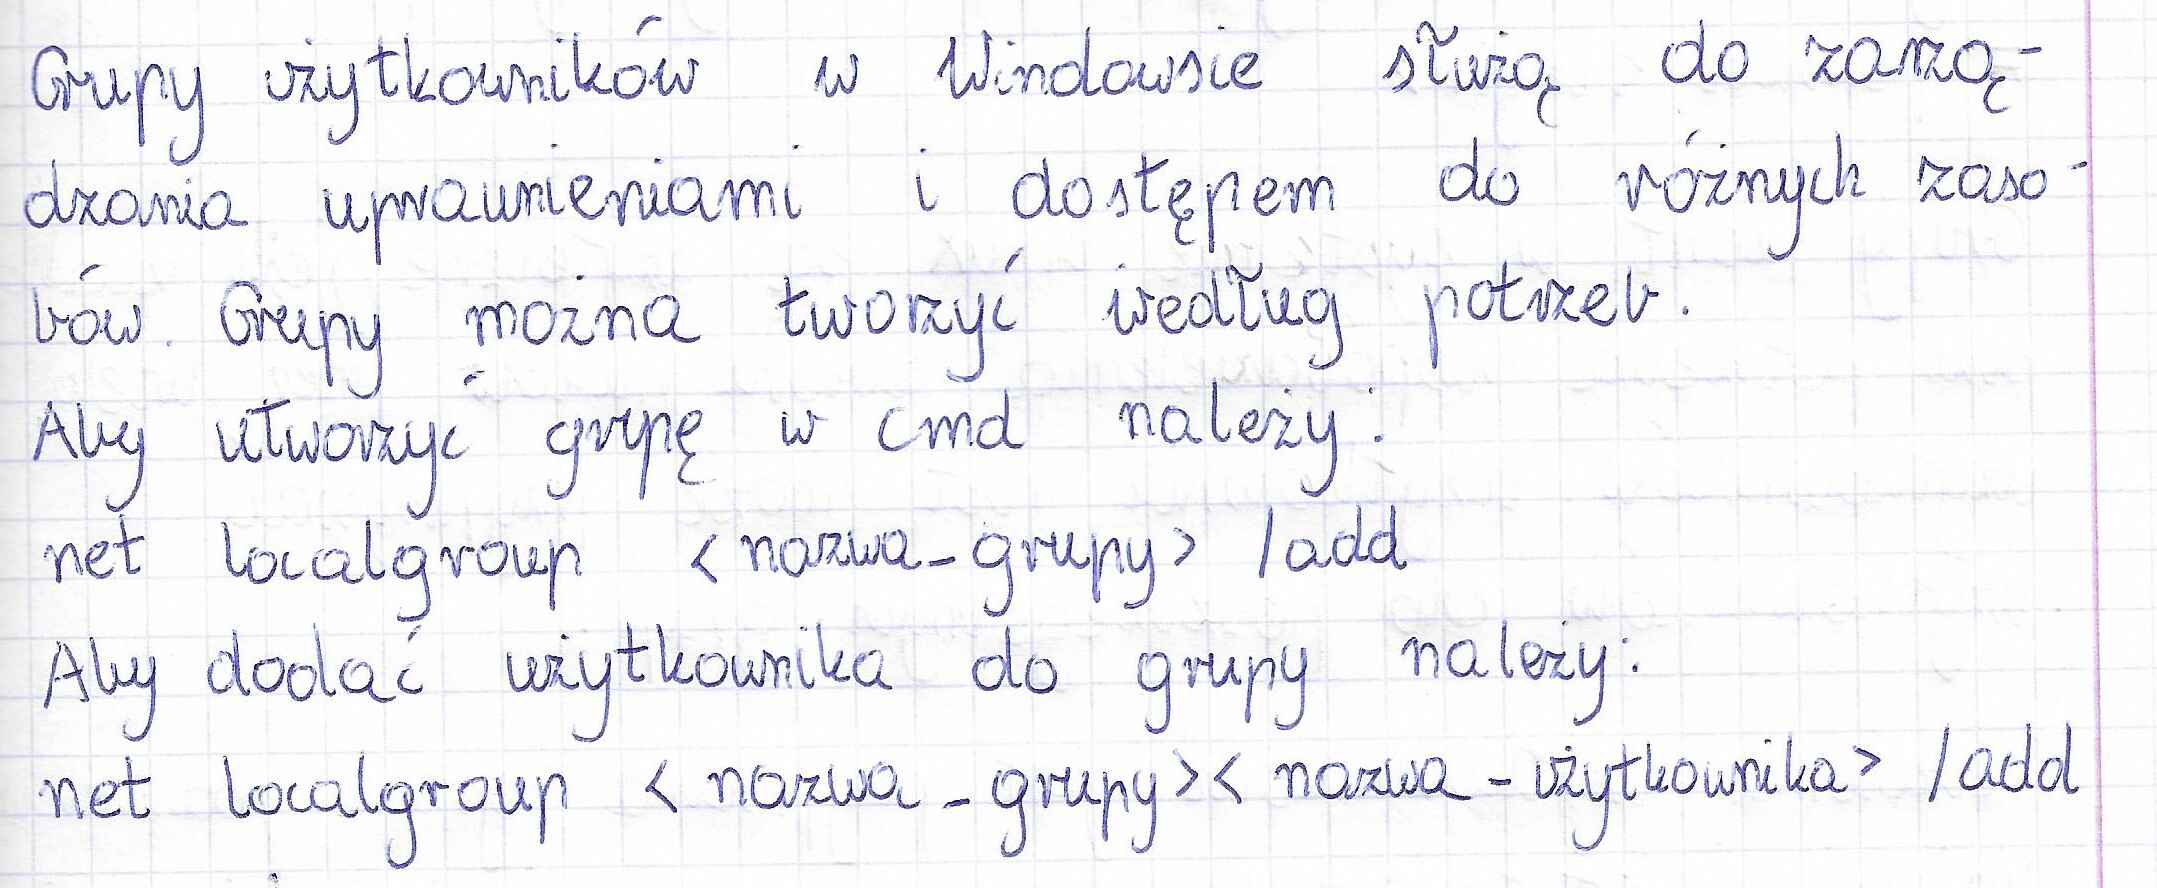 Grupy użytkowników w Windowsie służą do zarzą-
dzania uprawnieniami i dostępem do różnych zaso-
bów. Grupy można tworzyć według potrzeb.
Aby utworzyć grupę w cmd należy:
net localgroup <nazwa_grupy> /add
Aby dodać użytkownika do grupy należy:
net localgroup <nazwa_grupy><nazwa_użytkownika> /add